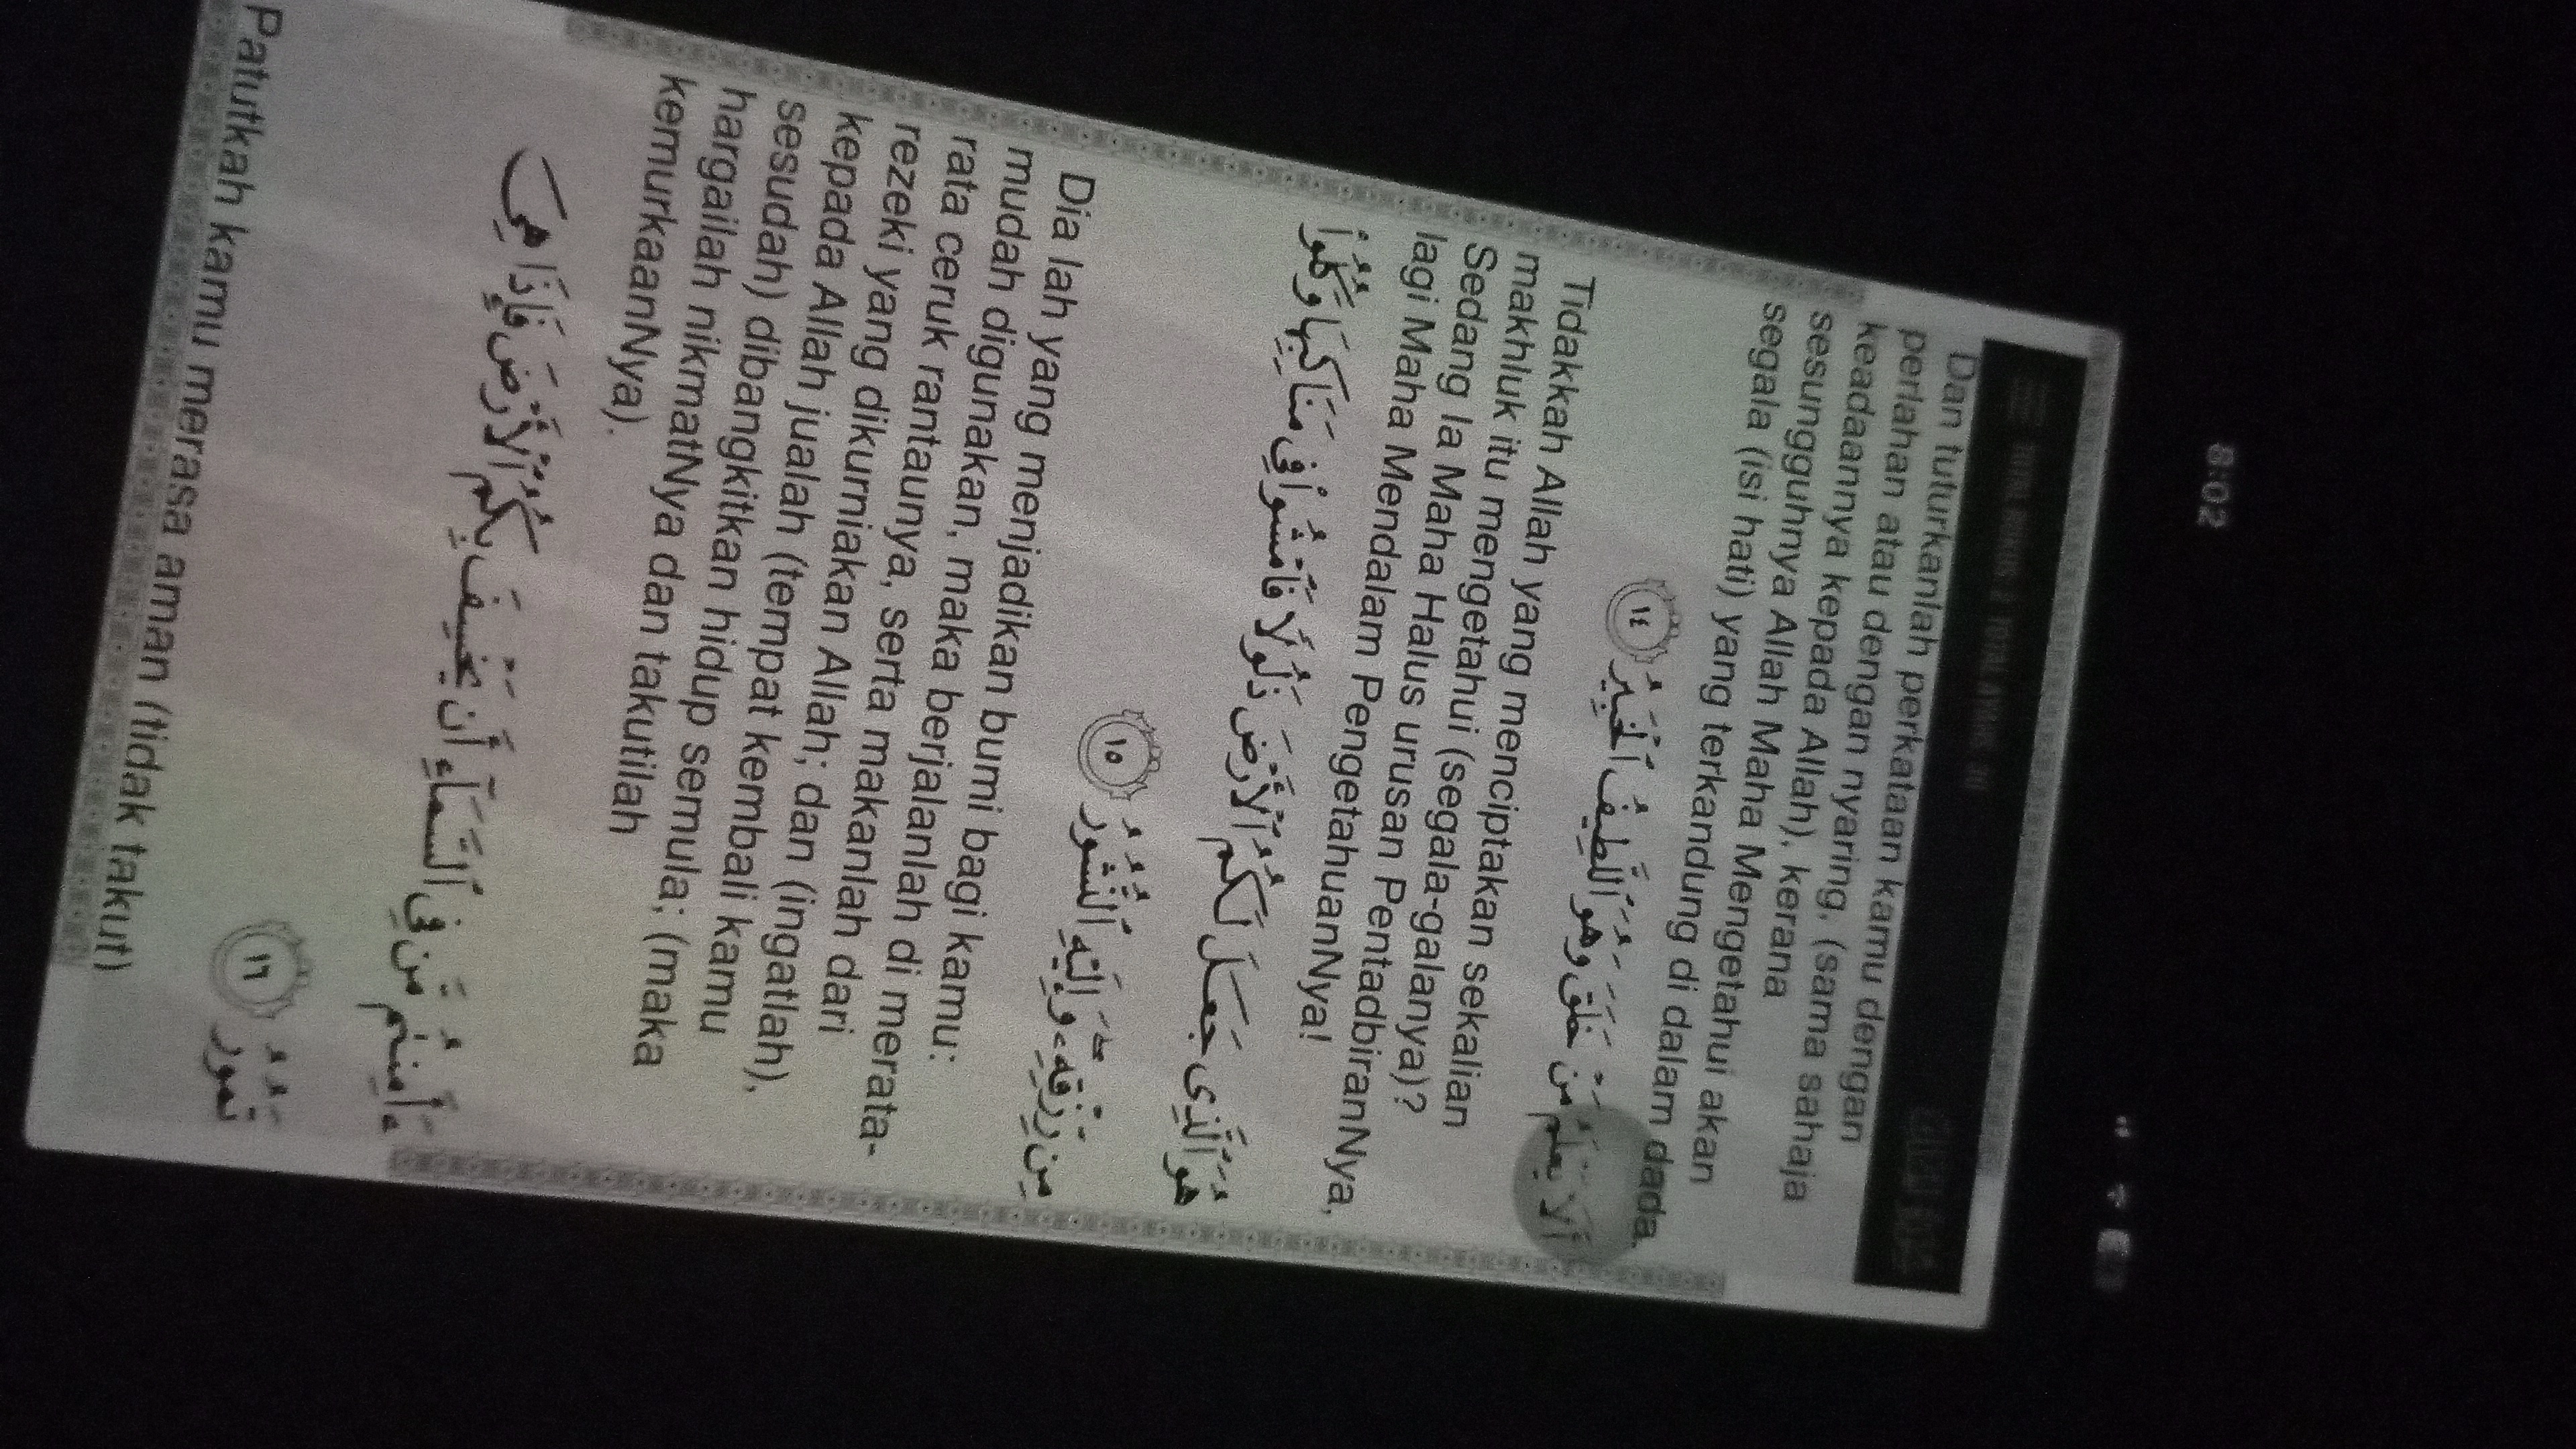 8:02
Dan tuturkanlah perkataan kamu dengan
perlahan atau dengan nyaring, (sama sahaja
keadaannya kepada Allah), kerana
sesungguhnya Allah Maha Mengetahui akan
segala (isi hati) yang terkandung di dalam dada.
أَلَا يَعْلَمُ مَنْ خَلَقَ وَهُوَ ٱللَّطِيفُ ٱلْخَبِيرُ ١٤
Tidakkah Allah yang menciptakan sekalian
makhluk itu mengetahui (segala-galanya)?
Sedang Ia Maha Halus urusan PentadbiranNya,
lagi Maha Mendalam PengetahuanNya!
هُوَ ٱلَّذِى جَعَلَ لَكُمُ ٱلْأَرْضَ ذَلُولًا فَٱمْشُوا۟ فِى مَنَاكِبِهَا وَكُلُوا۟
مِن رِّزْقِهِۦ وَإِلَيْهِ ٱلنُّشُورُ ١٥
Dia lah yang menjadikan bumi bagi kamu:
mudah digunakan, maka berjalanlah di merata-
rata ceruk rantaunya, serta makanlah dari
rezeki yang dikurniakan Allah; dan (ingatlah),
kepada Allah jualah (tempat kembali kamu
sesudah) dibangkitkan hidup semula; (maka
hargailah nikmatNya dan takutilah
kemurkaanNya).
ءَأَمِنتُم مَّن فِى ٱلسَّمَآءِ أَن يَخْسِفَ بِكُمُ ٱلْأَرْضَ فَإِذَا هِىَ
تَمُورُ ١٦
Patutkah kamu merasa aman (tidak takut)